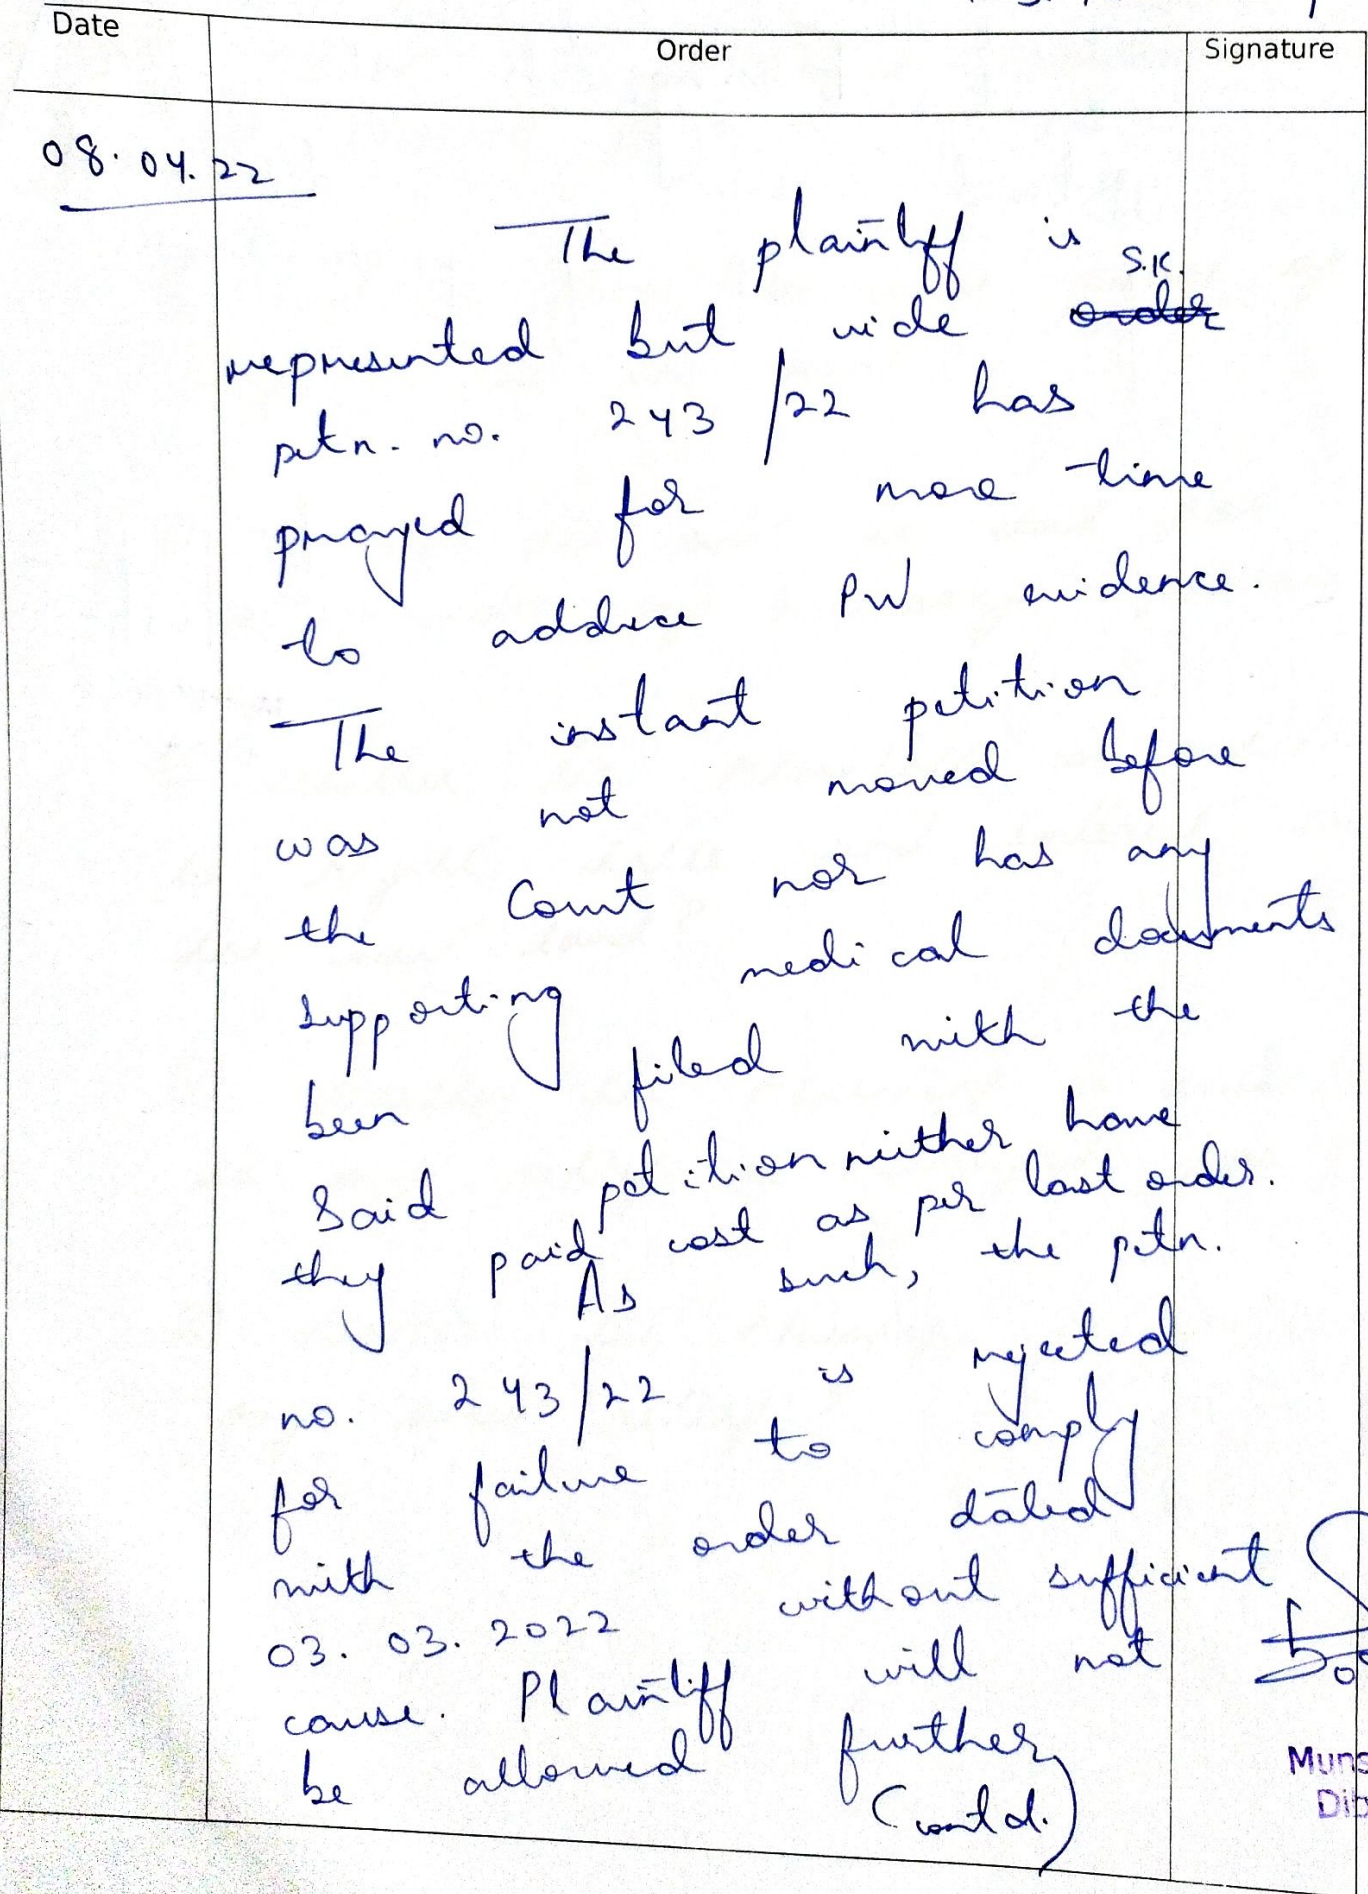 Date Order Signature
08.04.22
The plaintiff is
S.K.
represented but vide ~~order~~
petn. no. 243/22 has
prayed for more time
to adduce PW evidence.
The instant petition
was not moved before
the Court nor has any
supporting medical documents
been filed with the
said petition neither have
they paid cost as per last order.
As such, the petn.
no. 243/22 is rejected
for failure to comply
with the order dated
03.03.2022 without sufficient
cause. Plaintiff will not
be allowed further
(contd.)
Muns
Dib